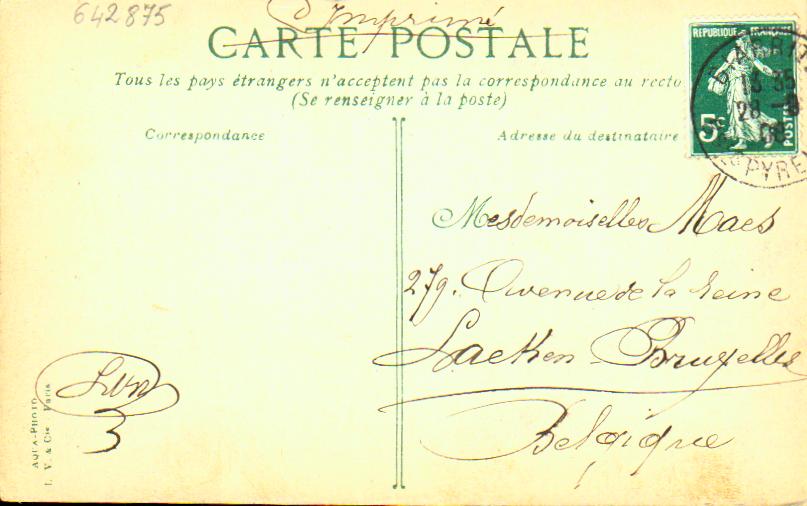 642875
Imprimé
CARTE POSTALE
Tous les pays étrangers n'acceptent pas la correspondance au recto
(Se renseigner à la poste)
REPUBLIQUE FRANÇAISE
5c
POSTES
13 35
28 -8
08
PYREN
Correspondance
Adresse du destinataire
Mesdemoiselles Maes
279. Avenue de la Reine
Laeken-Bruxelles
Belgique
3
AQUA-PHOTO
L. V. & Cie Paris